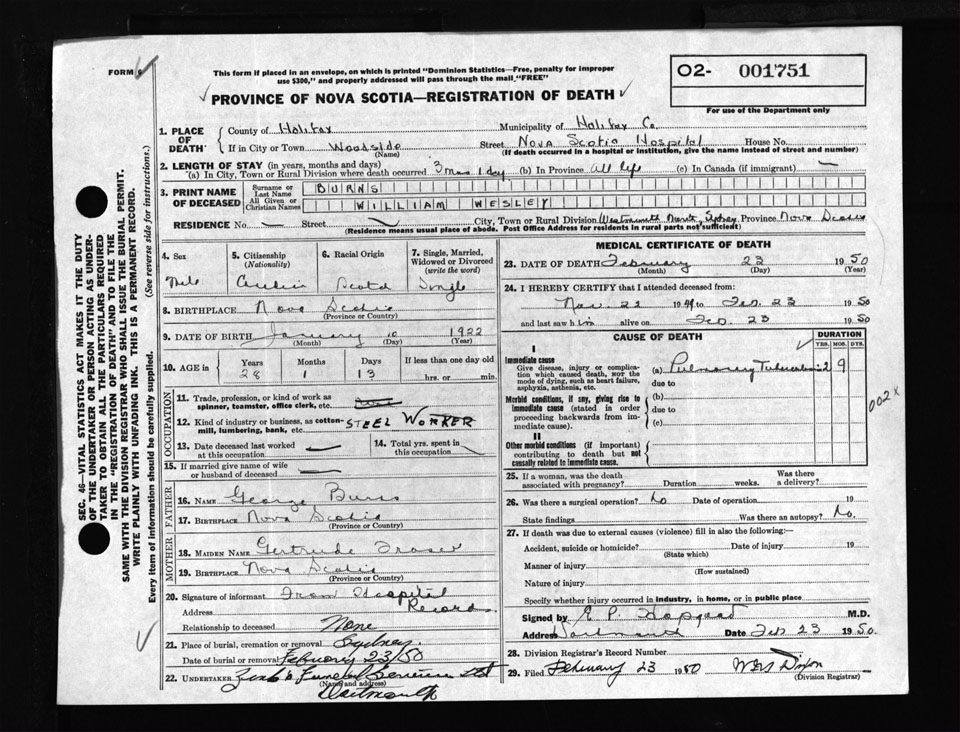 FORM 6
This form if placed in an envelope, on which is printed "Dominion Statistics—Free, penalty for improper
use $300," and properly addressed will pass through the mail "FREE"
O2- 001751
For use of the Department only
PROVINCE OF NOVA SCOTIA—REGISTRATION OF DEATH
1. PLACE OF DEATH
County of Halifax Municipality of Halifax Co.
If in City or Town Woodside (Name) Street Nova Scotia Hospital House No.
(If death occurred in a hospital or institution, give the name instead of street and number)
2. LENGTH OF STAY (in years, months and days)
(a) In City, Town or Rural Division where death occurred 3 mos 1 day (b) In Province all life (c) In Canada (if immigrant) —
3. PRINT NAME OF DECEASED
Surname or Last Name BURNS
All Given or Christian Names WILLIAM WESLEY
RESIDENCE No. — Street City, Town or Rural Division Sydney Province Nova Scotia
(Residence means usual place of abode. Post Office Address for residents in rural parts not sufficient)
4. Sex Male
5. Citizenship (Nationality)
6. Racial Origin Scotch
7. Single, Married, Widowed or Divorced (write the word) Single
8. BIRTHPLACE Nova Scotia
(Province or Country)
9. DATE OF BIRTH January 10 1922
(Month) (Day) (Year)
10. AGE in Years 28 Months 1 Days 13 If less than one day old hrs. or min.
OCCUPATION
11. Trade, profession, or kind of work as spinner, teamster, office clerk, etc.
12. Kind of industry or business, as cotton-mill, lumbering, bank, etc. STEEL WORKER
13. Date deceased last worked at this occupation —
14. Total yrs. spent in this occupation
15. If married give name of wife or husband of deceased —
FATHER
16. NAME George Burns
17. BIRTHPLACE Nova Scotia
(Province or Country)
MOTHER
18. MAIDEN NAME Gertrude Fraser
19. BIRTHPLACE Nova Scotia
(Province or Country)
20. Signature of informant From Hospital Records
Address
Relationship to deceased None
21. Place of burial, cremation or removal Sydney.
Date of burial or removal February 23/50
22. UNDERTAKER Funeral Service Ltd
(Name and address)
Dartmouth
MEDICAL CERTIFICATE OF DEATH
23. DATE OF DEATH February 23 1950
(Month) (Day) (Year)
24. I HEREBY CERTIFY that I attended deceased from:
Nov. 22 1949 to Feb. 23 1950
and last saw him alive on Feb. 23 1950
CAUSE OF DEATH
DURATION
YRS. MOS. DYS.
I
Immediate cause
Give disease, injury or complication which caused death, NOT the mode of dying, such as heart failure, asphyxia, asthenia, etc.
(a) Pulmonary Tuberculosis 2 9
due to
Morbid conditions, if any, giving rise to immediate cause (stated in order proceeding backwards from immediate cause).
(b)
due to
(c)
II
Other morbid conditions (if important) contributing to death but not causally related to immediate cause.
002 X
25. If a woman, was the death associated with pregnancy? Duration weeks. Was there a delivery?
26. Was there a surgical operation? No Date of operation 19
State findings Was there an autopsy? No.
27. If death was due to external causes (violence) fill in also the following:
Accident, suicide or homicide? Date of injury 19
(State which)
Manner of injury
(How sustained)
Nature of injury
Specify whether injury occurred in industry, in home, or in public place
Signed by M.D.
Address Dartmouth Date Feb 23 1950.
28. Division Registrar's Record Number
29. Filed February 23 1950 Dixon
(Division Registrar)
SEC. 46—VITAL STATISTICS ACT MAKES IT THE DUTY
OF THE UNDERTAKER OR PERSON ACTING AS UNDER-
TAKER TO OBTAIN ALL THE PARTICULARS REQUIRED
IN THE "REGISTRATION OF DEATH" AND TO FILE THE
SAME WITH THE DIVISION REGISTRAR WHO SHALL ISSUE THE BURIAL PERMIT.
WRITE PLAINLY WITH UNFADING INK. THIS IS A PERMANENT RECORD.
Every item of information should be carefully supplied. (See reverse side for instructions.)